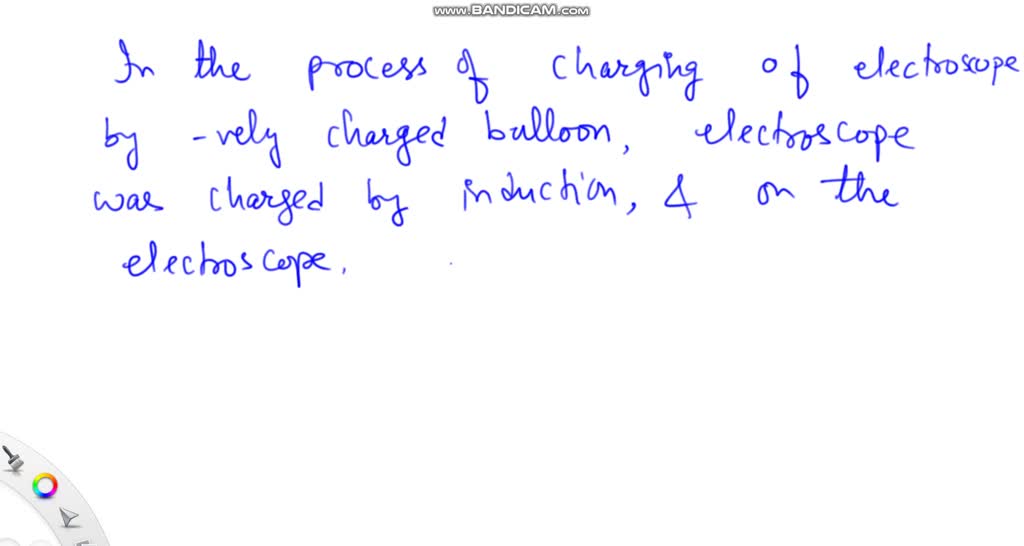 www.BANDICAM.com
In the process of charging of electroscope
by -vely charged balloon, electroscope
was charged by induction, & on the
electroscope.